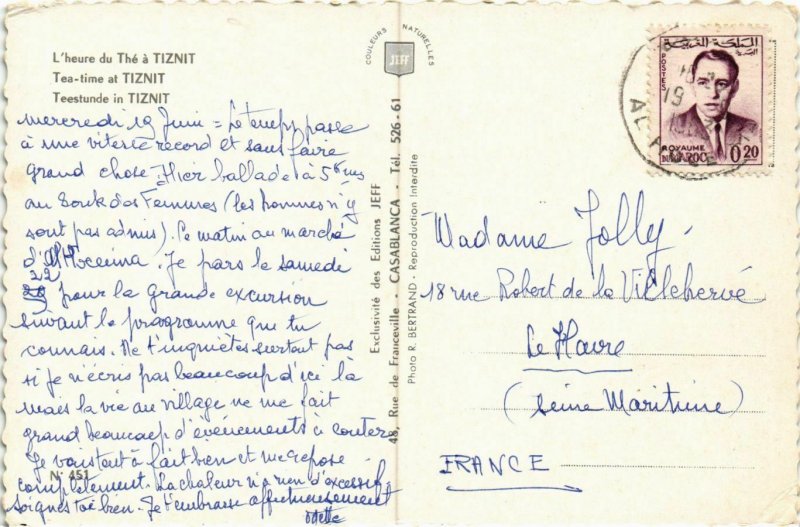 L'heure du Thé à TIZNIT
Tea-time at TIZNIT
Teestunde in TIZNIT
mercredi 19 Juin = Le temps passe
à une vitesse record et sans faire
grand chose. Hier ballade à 5 kms
au Souk des Femmes (les hommes n'y
sont pas admis). Ce matin au marché
d'Al Hoceima. Je pars le samedi
22 pour la grande excursion
suivant le programme que tu
connais. Ne t'inquiètes surtout pas
si je n'écris pas beaucoup d'ici là
mais la vie au village ne me fait
grand beaucoup d'évènements à conter
Je vais tout à fait bien et me repose
complètement. La chaleur n'a rien d'excessif
soignes toi bien. Je t'embrasse affectueusement
Odette
N° 451
COULEURS NATURELLES
JEFF
Exclusivité des Editions JEFF
48, Rue de Franceville - CASABLANCA - Tél. 526-61
Photo R. BERTRAND - Reproduction Interdite
المملكة المغربية
POSTES
ROYAUME
DU MAROC
0,20
19
AL
Madame Jolly
18 rue Robert de la Villehervé
Le Havre
(Seine Maritime)
FRANCE